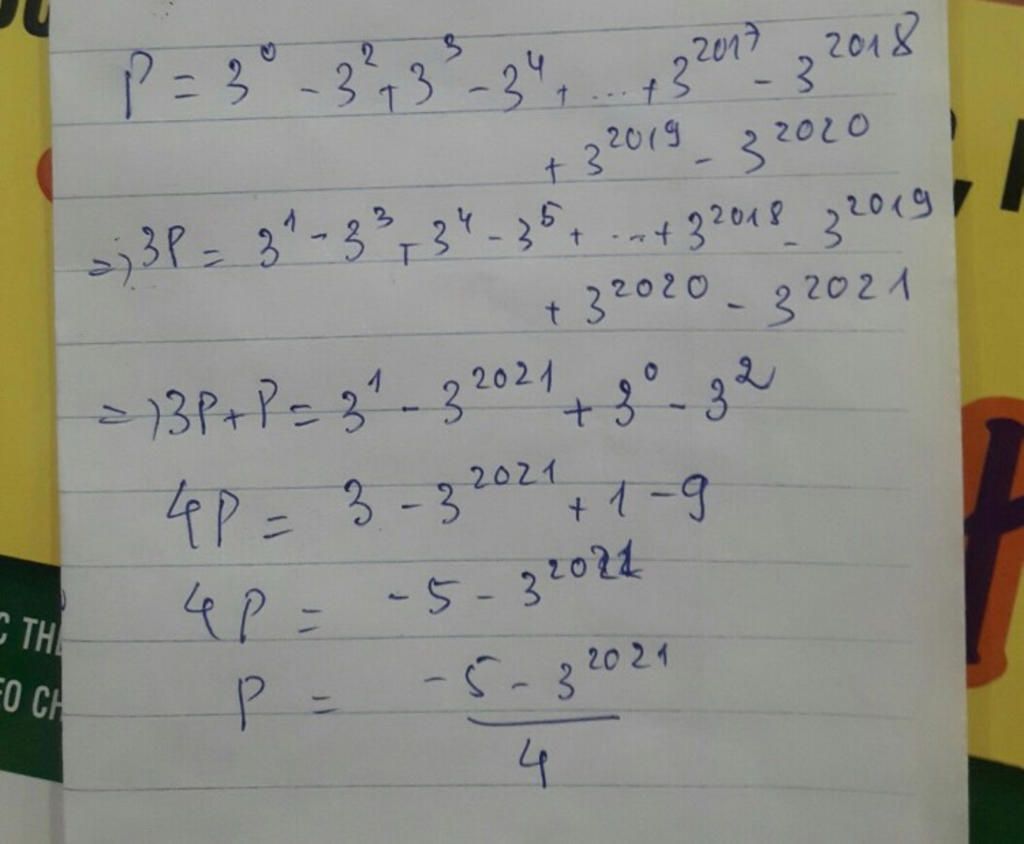 P = 3⁰ - 3² + 3³ - 3⁴ + ... + 3²⁰¹⁷ - 3²⁰¹⁸
+ 3²⁰¹⁹ - 3²⁰²⁰
=> 3P = 3¹ - 3³ + 3⁴ - 3⁵ + ... + 3²⁰¹⁸ - 3²⁰¹⁹
+ 3²⁰²⁰ - 3²⁰²¹
=> 3P + P = 3¹ - 3²⁰²¹ + 3⁰ - 3²
4P = 3 - 3²⁰²¹ + 1 - 9
4P = -5 - 3²⁰²¹
P = -5 - 3²⁰²¹
4